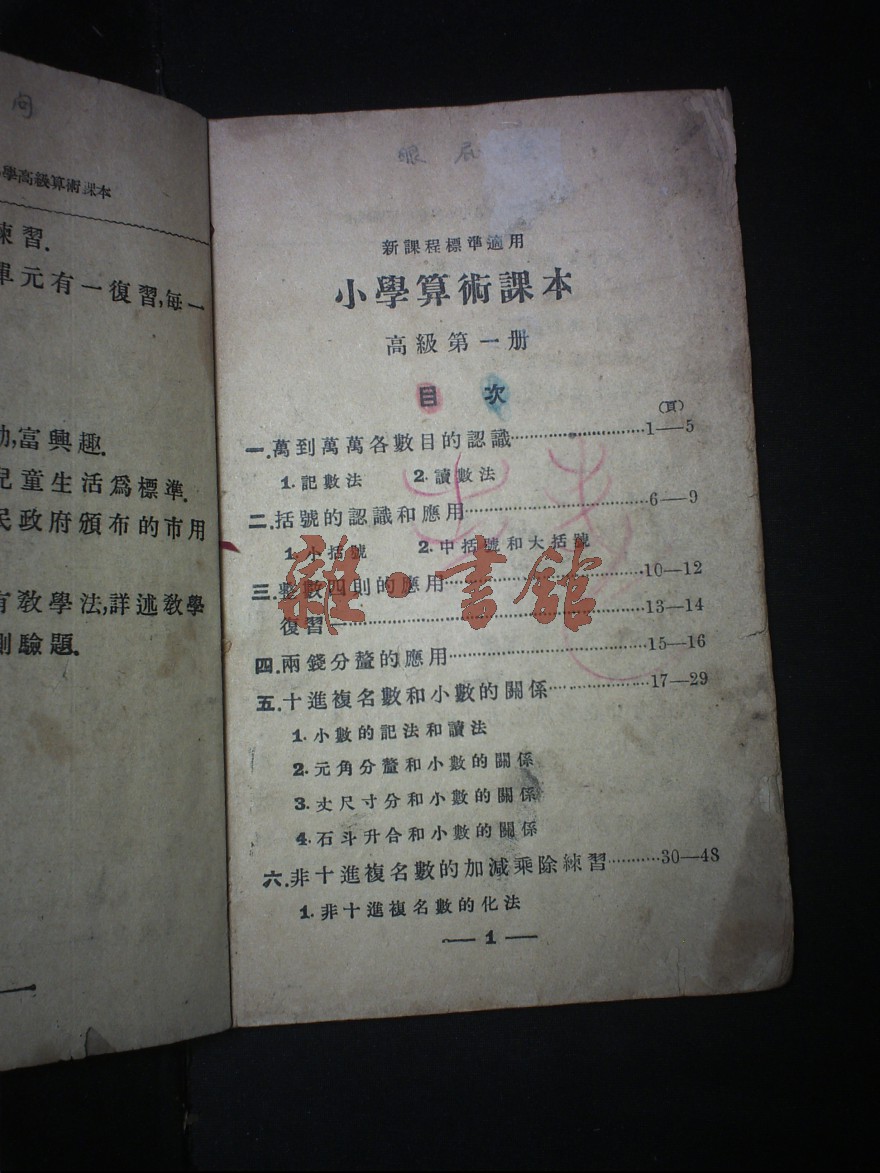 向
學高級算術課本
練習.
單元有一復習,每一
富興趣.
兒童生活爲標準.
民政府頒布的市用
有教學法,詳述教學
測驗題.
眼
新課程標準適用
小學算術課本
高級第一册
目次
(頁)
一.萬到萬萬各數目的認識……1—5
1.記數法 2.讀數法
二.括號的認識和應用……6—9
1.小括號 2.中括號和大括號
三.整數四則的應用……10—12
復習一……13—14
四.兩錢分釐的應用……15—16
五.十進複名數和小數的關係……17—29
1.小數的記法和讀法
2.元角分釐和小數的關係
3.丈尺寸分和小數的關係
4.石斗升合和小數的關係
六.非十進複名數的加減乘除練習……30—48
1.非十進複名數的化法
— 1 —
雜·書館